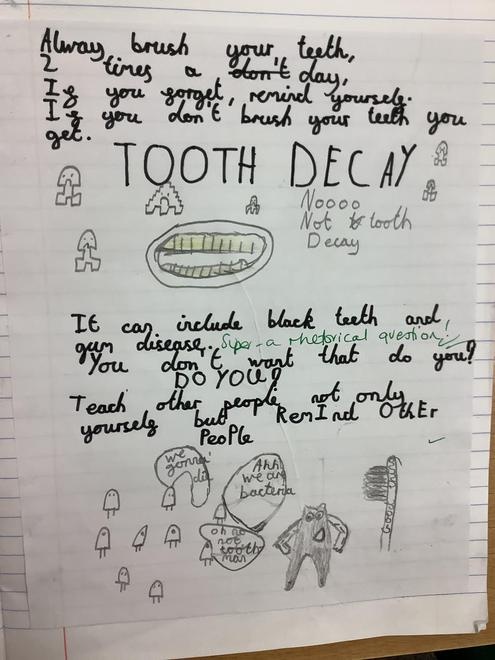 Alway brush your teeth,
2 times a don't day,
If you forget, remind yourself.
If you don't brush your teeth you
get.
TOOTH DECAY
Noooo
Not tooth
Decay
It can include black teeth and
gum disease. Super - a rhetorical question!
You don't want that do you?
DO YOU?
Teach other people not only
yourself but RemInd OthEr
PeoPle
we
gonna'
die
Ahh
we are
bacteria
oh no
not
tooth
man
Good thing